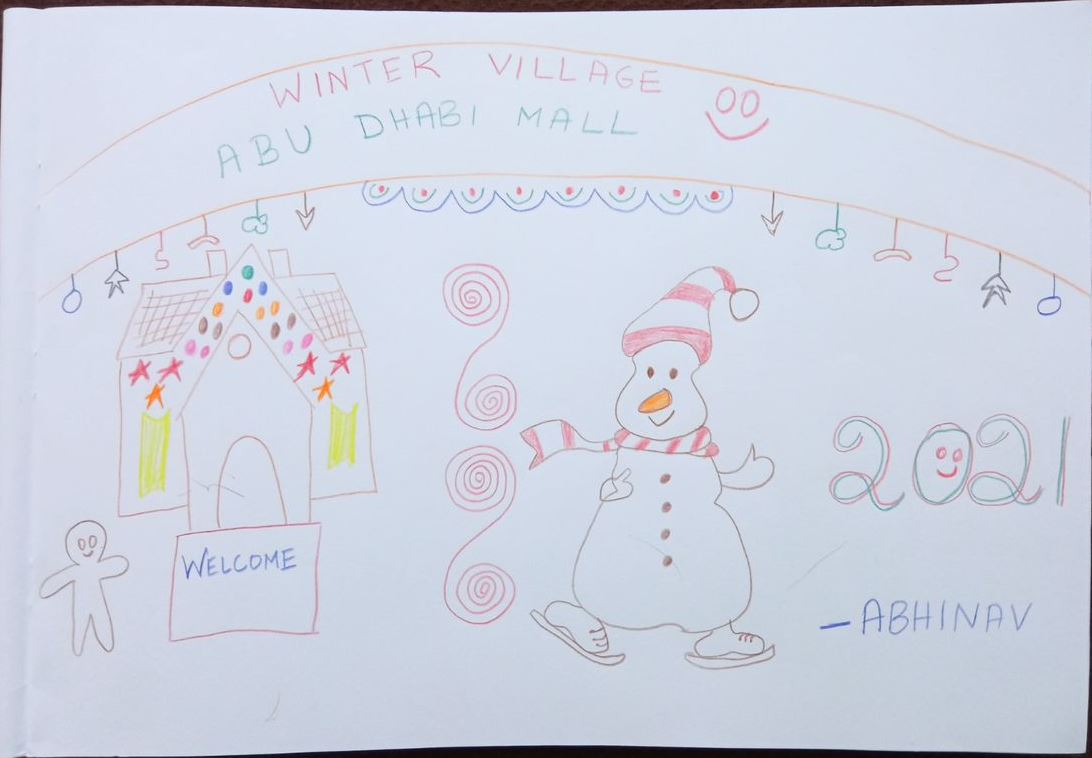 WINTER VILLAGE
ABU DHABI MALL
WELCOME
2021
-ABHINAV